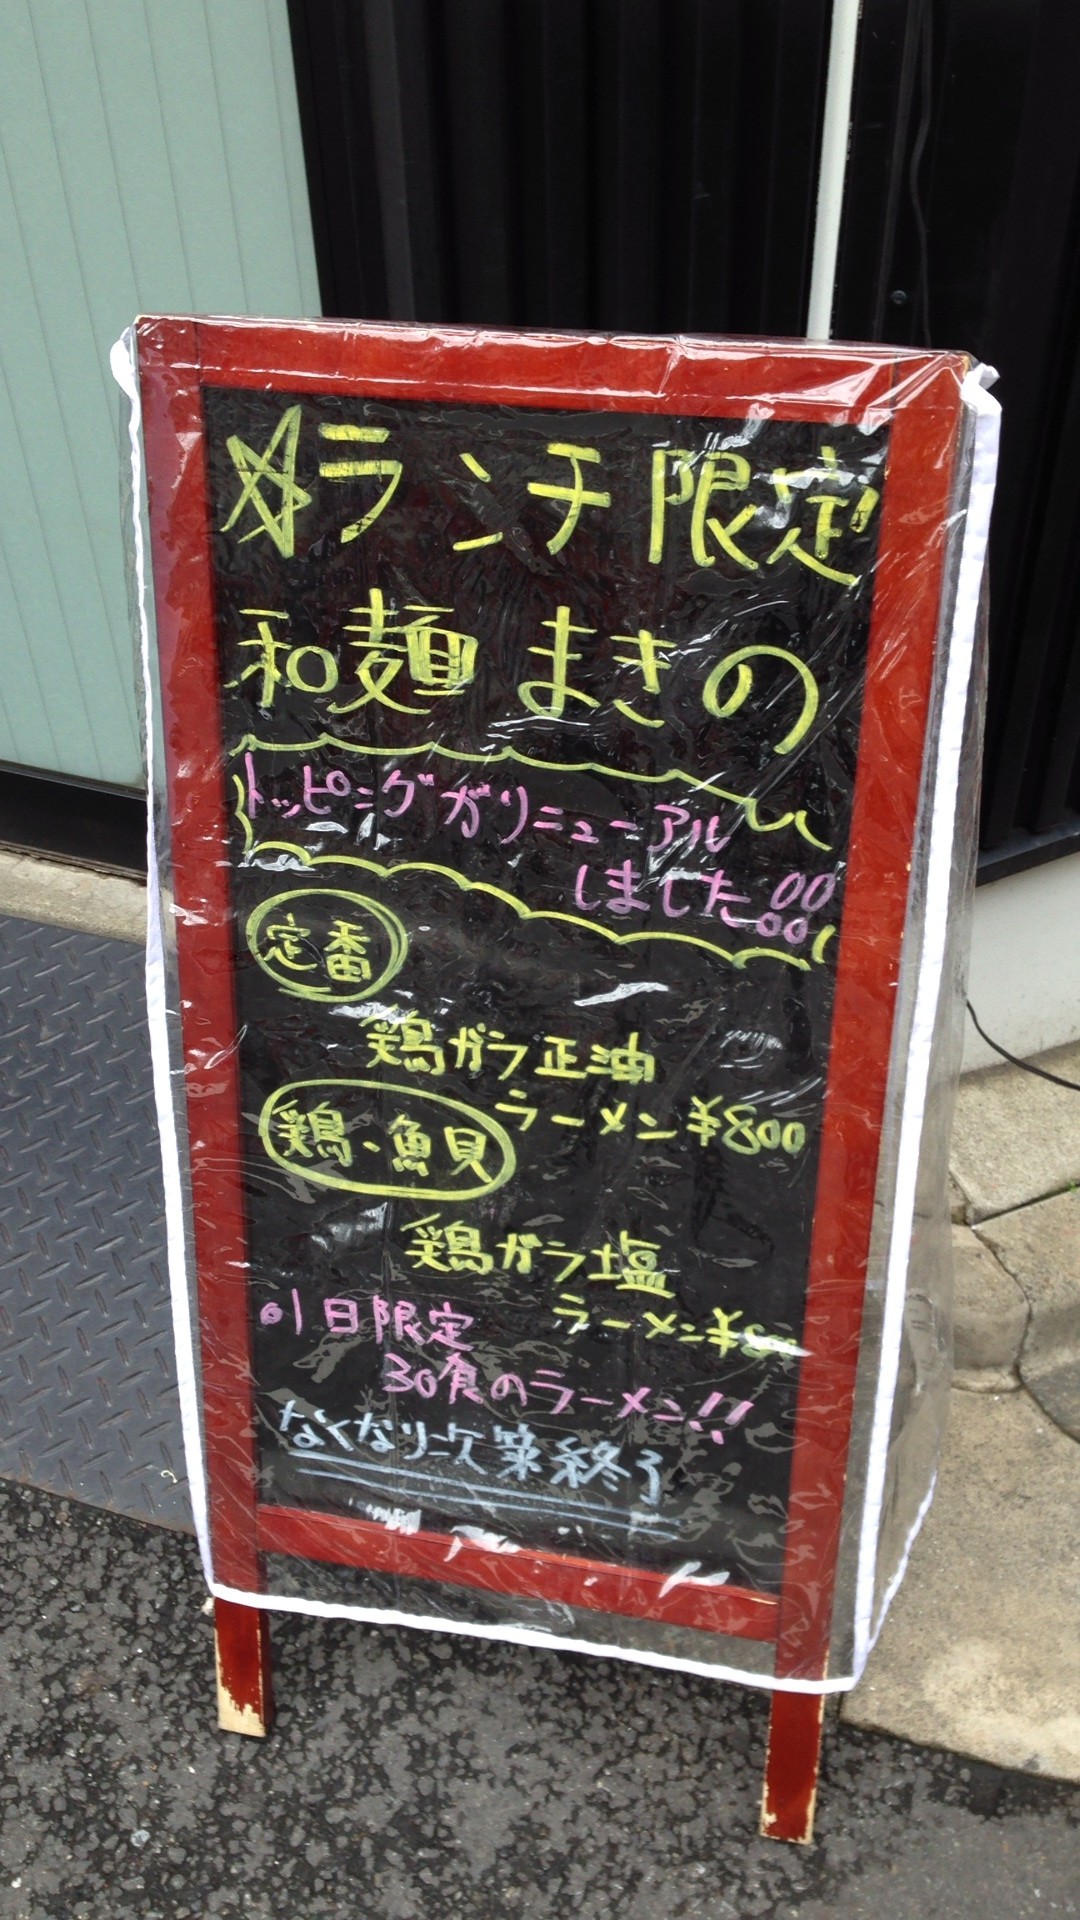 ☆ランチ限定
和麺 まきの
トッピングがリニューアル
しました
定番
鶏ガラ正油
ラーメン¥800
鶏・魚貝
鶏ガラ塩
ラーメン¥800
1日限定
30食のラーメン!!
なくなり次第終了